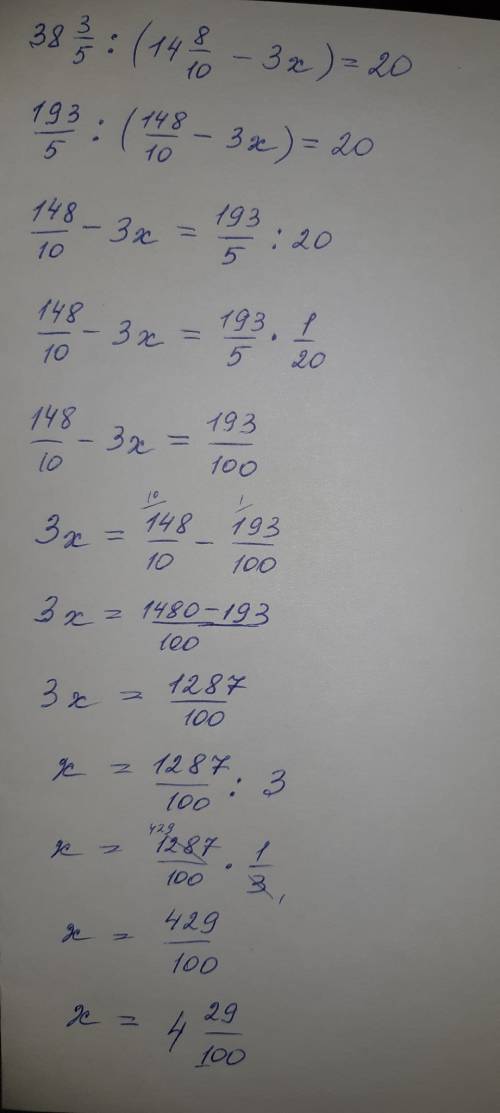 38 3/5 : (14 8/10 - 3x) = 20
193/5 : (148/10 - 3x) = 20
148/10 - 3x = 193/5 : 20
148/10 - 3x = 193/5 · 1/20
148/10 - 3x = 193/100
3x = 10/ 148/10 - 1/ 193/100
3x = 1480-193/100
3x = 1287/100
x = 1287/100 : 3
x = 429 1287/100 · 1/3 1
x = 429/100
x = 4 29/100